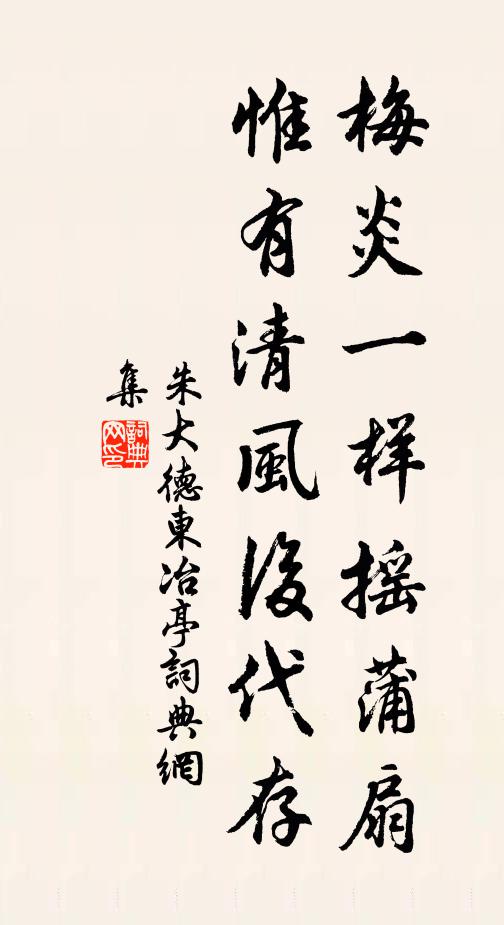 梅炎一样摇蒲扇
惟有清風後代存
朱大德東冶亭詞典網
集
詞典網印